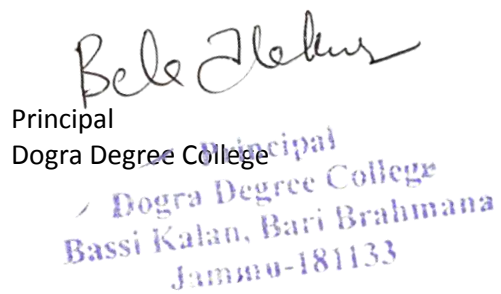 Principal
Dogra Degree College
Principal
Dogra Degree College
Bassi Kalan, Bari Brahmana
Jammu-181133